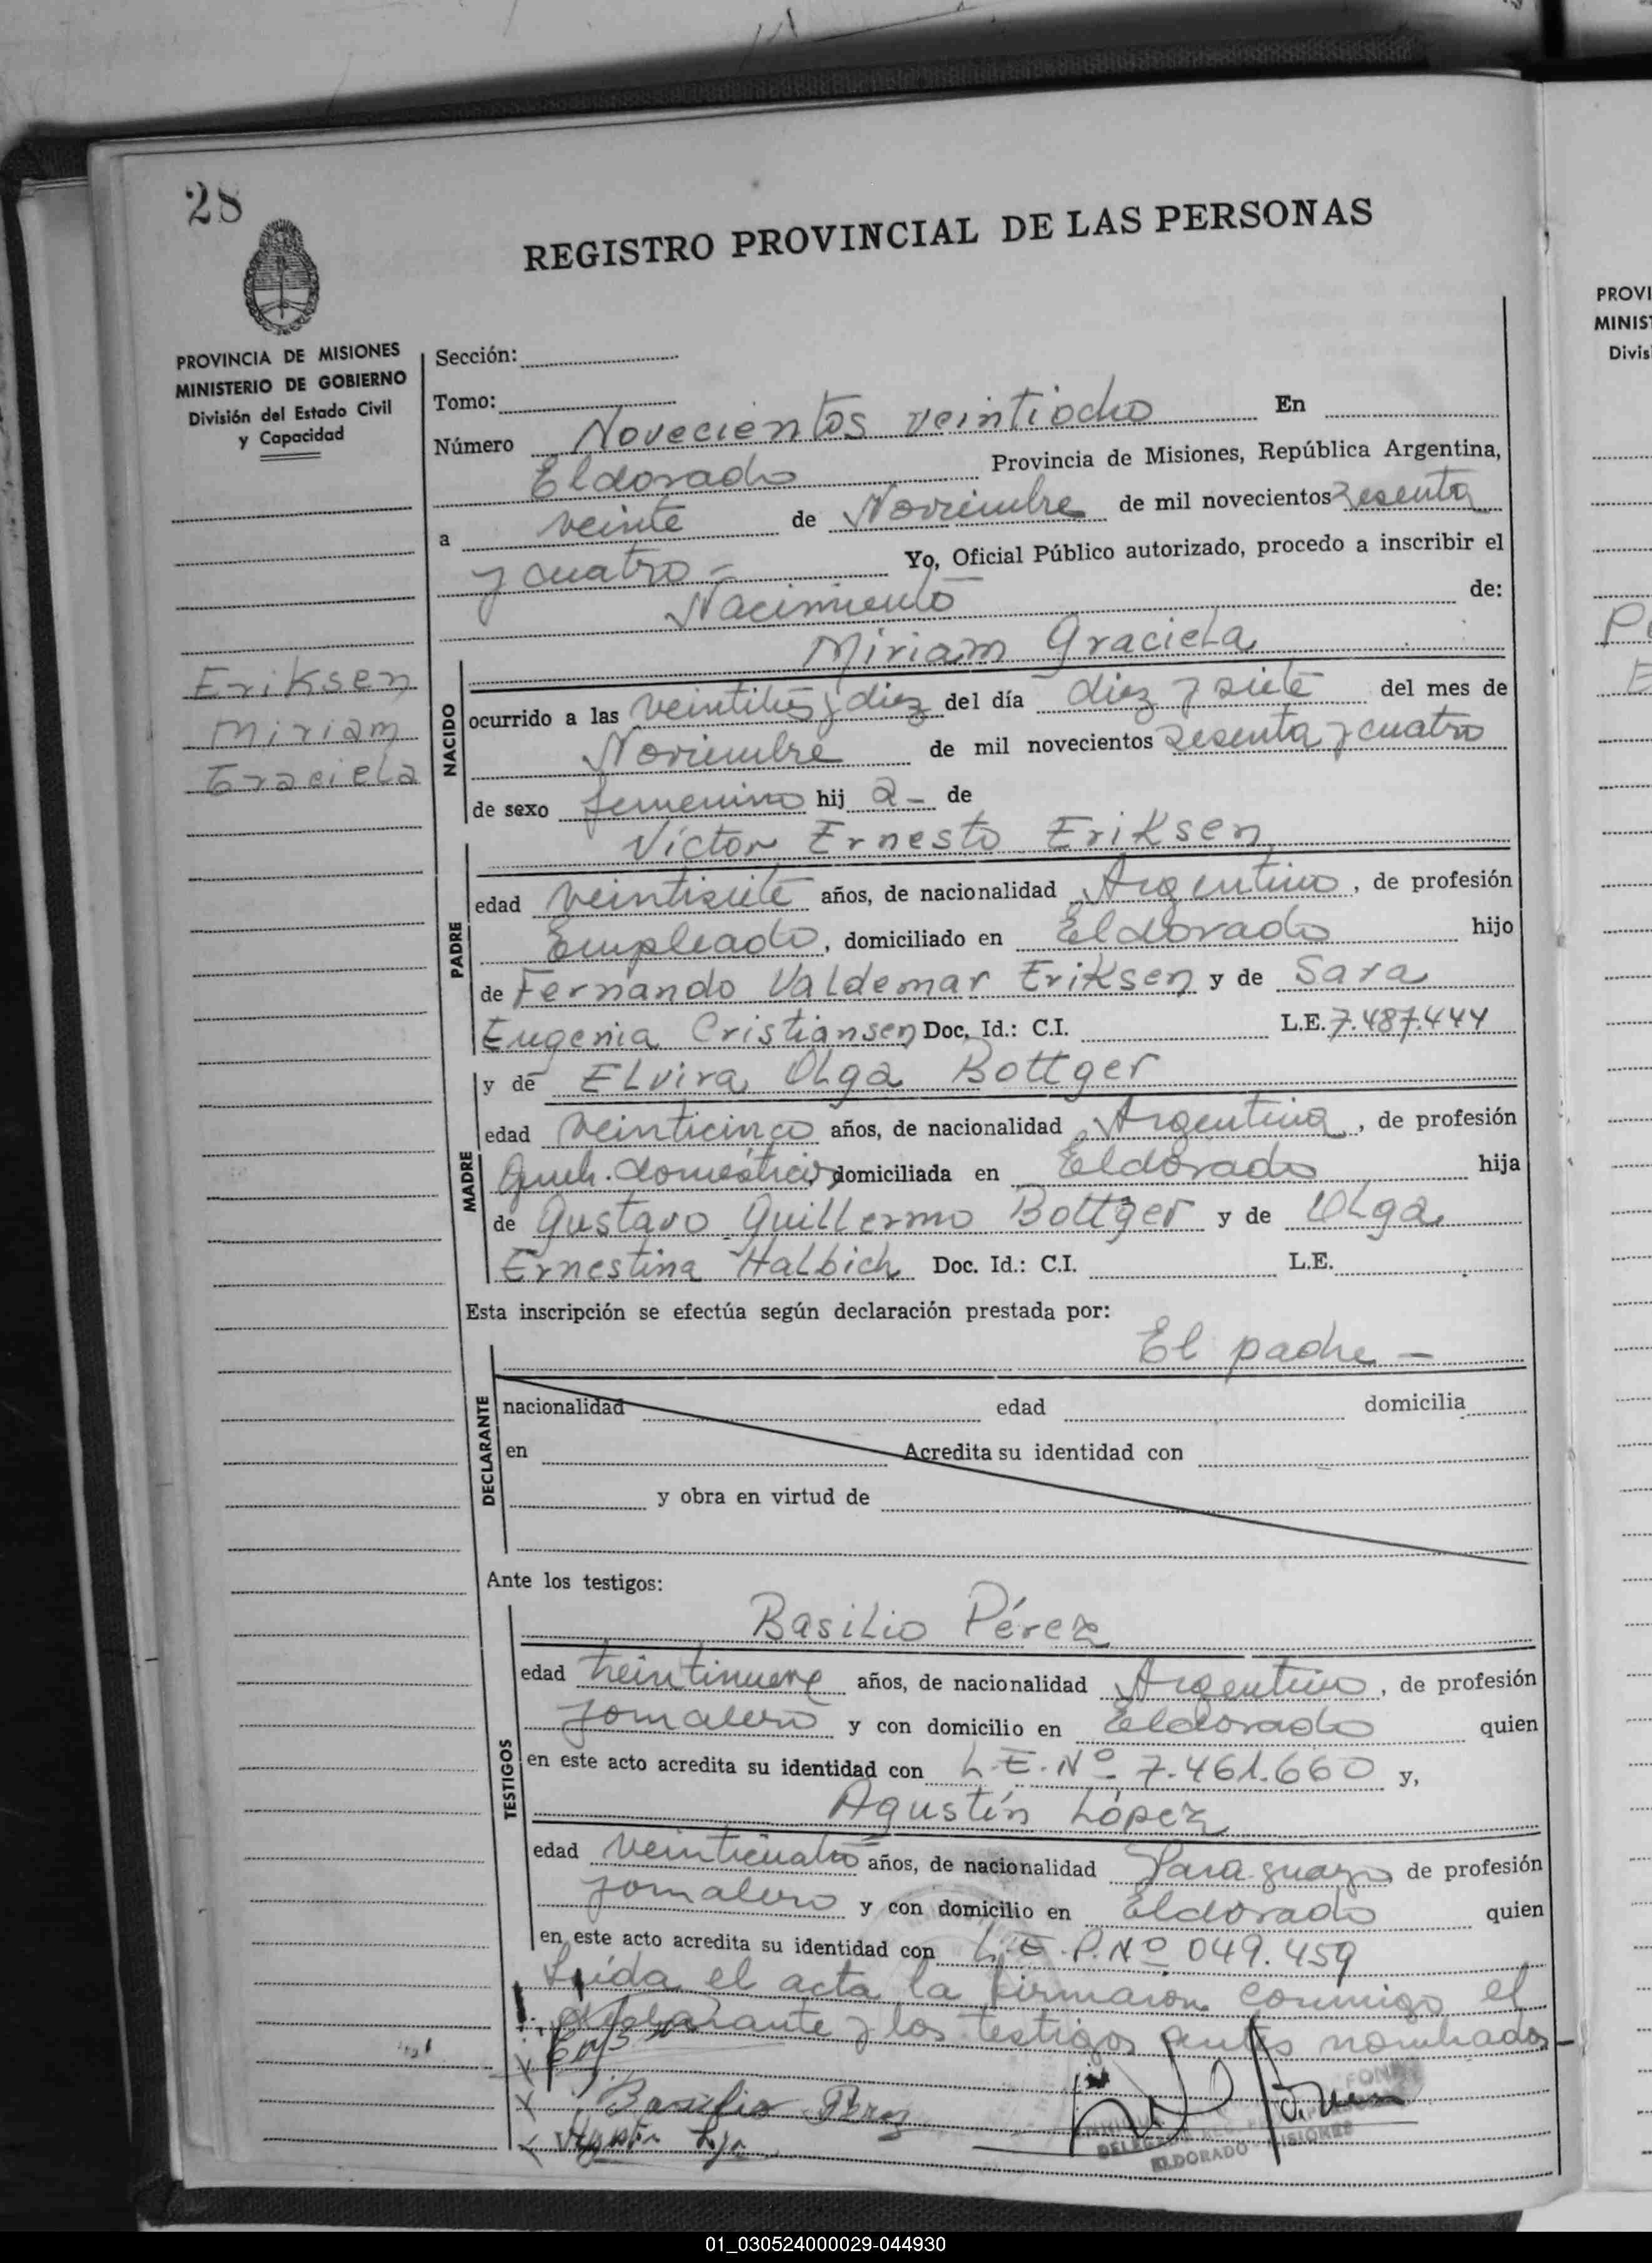 28
REGISTRO PROVINCIAL DE LAS PERSONAS
PROVINCIA DE MISIONES
MINISTERIO DE GOBIERNO
División del Estado Civil
y Capacidad
Eriksen
Miriam
Graciela
Sección:
Tomo:
Número Novecientos veintiocho En
Eldorado Provincia de Misiones, República Argentina,
a veinte de Noviembre de mil novecientos sesenta
y cuatro - Yo, Oficial Público autorizado, procedo a inscribir el
Nacimiento de:
NACIDO
Miriam Graciela
ocurrido a las veintitrés y diez del día diez y siete del mes de
Noviembre de mil novecientos sesenta y cuatro
de sexo femenino hij a - de
PADRE
Víctor Ernesto Eriksen
edad veintisiete años, de nacionalidad Argentino, de profesión
Empleado, domiciliado en Eldorado hijo
de Fernando Valdemar Eriksen y de Sara
Eugenia Cristiansen Doc. Id.: C.I. L.E. 7.487.444
MADRE
y de Elvira Olga Bottger
edad veinticinco años, de nacionalidad Argentina, de profesión
Queh. domésticos domiciliada en Eldorado hija
de Gustavo Guillermo Bottger y de Olga
Ernestina Halbich Doc. Id.: C.I. L.E.
Esta inscripción se efectúa según declaración prestada por:
DECLARANTE
El padre -
nacionalidad edad domicilia
en Acredita su identidad con
y obra en virtud de
Ante los testigos:
TESTIGOS
Basilio Pérez
edad treintinueve años, de nacionalidad Argentino, de profesión
Jornalero y con domicilio en Eldorado quien
en este acto acredita su identidad con L.E. Nº 7.461.660 y,
Agustín López
edad veinticuatro años, de nacionalidad Paraguayo de profesión
Jornalero y con domicilio en Eldorado quien
en este acto acredita su identidad con P. Nº 049.459
Leída el acta la firmaron conmigo el
declarante y los testigos antes nombrados -
Basilio Pérez
ELDORADO MISIONES
PROVI
MINIS
Divis
01_030524000029-044930